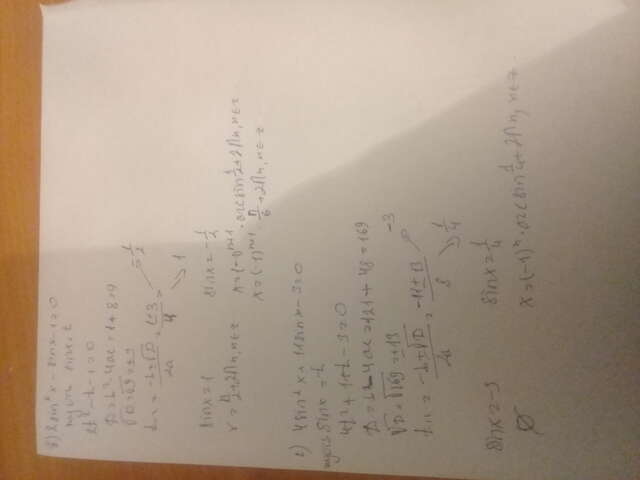 б) 2sin²x - sinx - 1 = 0
пусть sinx = t
2t² - t - 1 = 0
D = b² - 4ac = 1 + 8 = 9
√D = √9 = ±3
t₁,₂ = (-b ± √D)/2a = (1 ± 3)/4 = -1/2
1
sinx = 1 sinx = -1/2
x = π/2 + 2πn, n∈z x = (-1)ⁿ⁺¹ · arcsin 1/2 + 2πn, n∈z
x = (-1)ⁿ⁺¹ · π/6 + 2πn, n∈z
4sin²x + 11sinx - 3 = 0
пусть sinx = t
4t² + 11t - 3 = 0
D = b² - 4ac = 121 + 48 = 169
√D = √169 = ±13
t₁,₂ = (-b ± √D)/2a = (-11 ± 13)/8 -3
1/4
sinx = -3 sinx = 1/4
∅ x = (-1)ⁿ · arcsin 1/4 + 2πn, n∈z